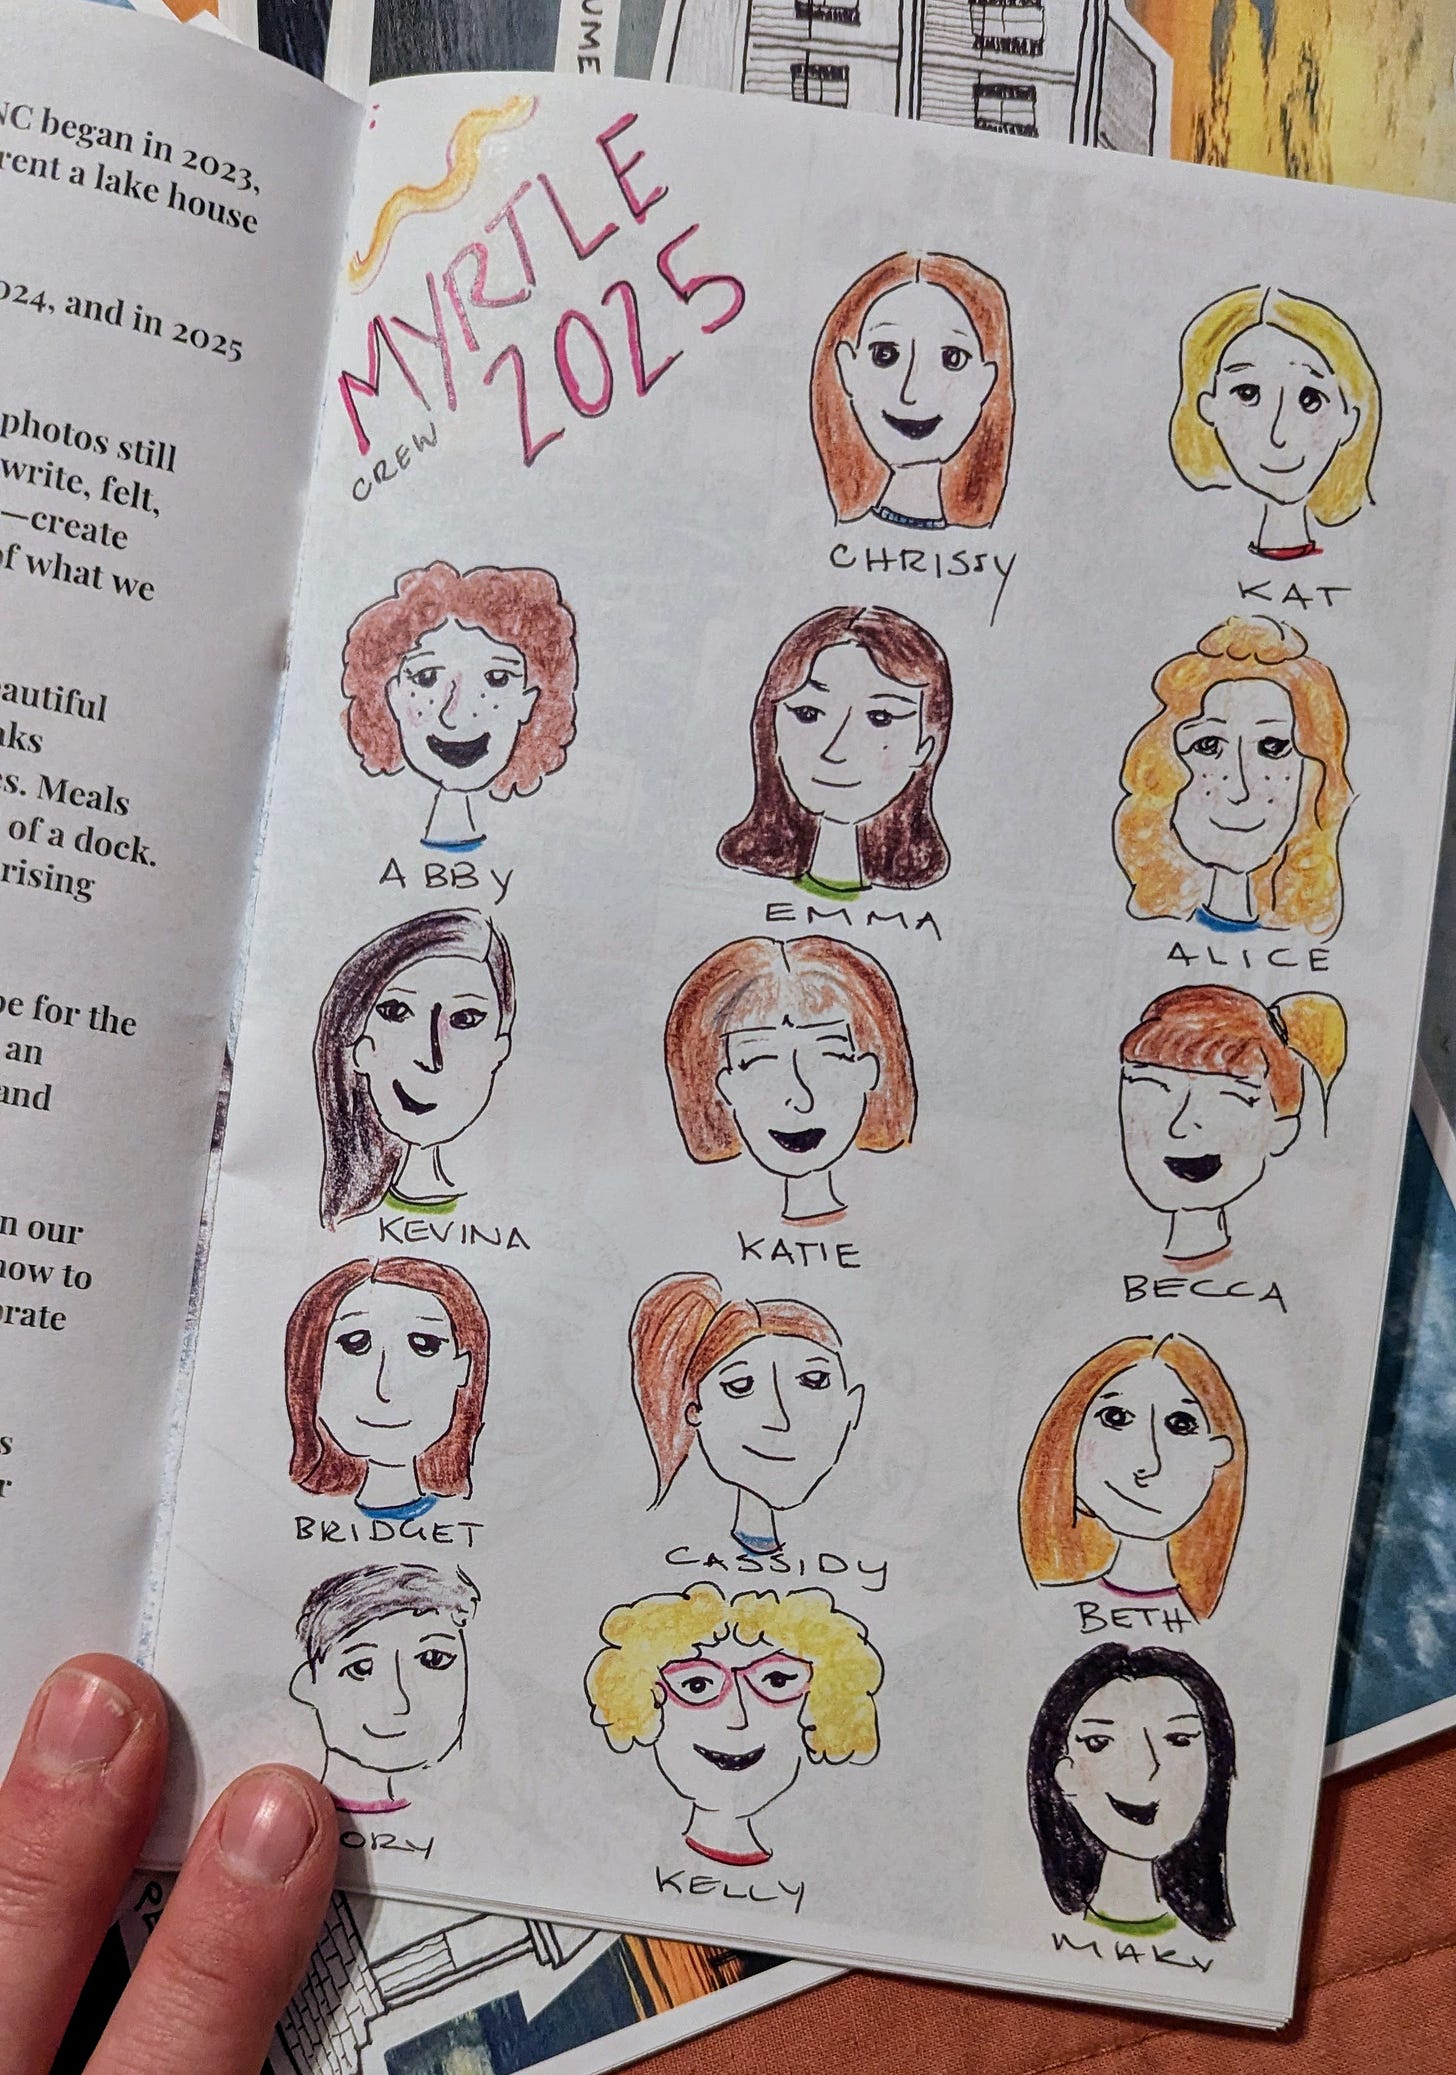 UME
NC began in 2023,
rent a lake house
024, and in 2025
photos still
write, felt,
—create
of what we
eautiful
aks
es. Meals
of a dock.
rising
pe for the
an
and
n our
how to
orate
s
r
MYRTLE
2025
CREW
CHRISSY
KAT
ABBY
EMMA
ALICE
KEVINA
KATIE
BECCA
BRIDGET
CASSIDY
BETH
ORY
KELLY
MARY